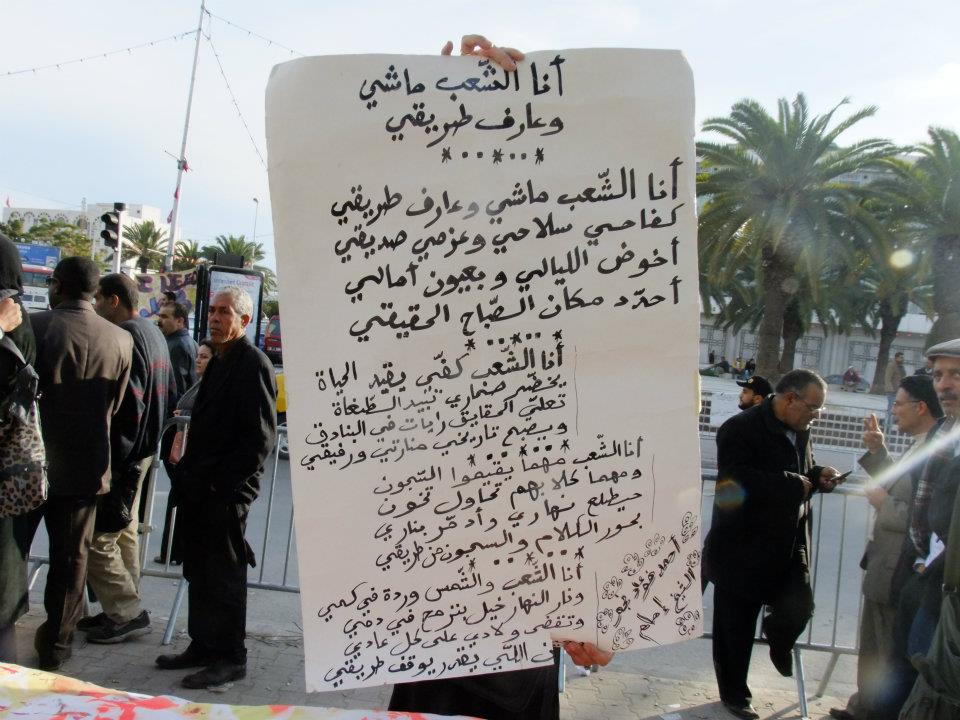 أنا الشّعب ماشي
وعارف طريقي
*..*..*
أنا الشّعب ماشي وعارف طريقي
كفاحي سلاحي وعزمي صديقي
أخوض الليالي وبعيون أمالي
أحدّد مكان الصّباح الحقيقي
*..*..*
أنا الشّعب كفّي يقيد الحياة
يخضّر صحاري يبيد الطّغاة
تعلّي الحقايق رايات في البنادق
ويصبح تاريخي منارتي ورفيقي
*..*..*
أنا الشّعب مهما يقيموا السّجون
ومهما كلابهم تحاول تخون
حيطلع نهاري وأدمّر بناري
بحور الكلام والسجون من طريقي
*..*..*
أنا الشّعب والشّمس وردة في كمي
ونار النهار خيل بتزمح في دمّي
وتقضي ولادي على كل عادي
مين اللّي يقدر يوقف طريقي
أحمد فؤاد نجم
الشيخ إمام